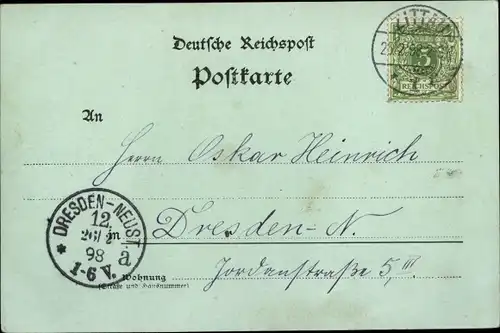 Deutsche Reichspost
ZITTAU
Postkarte
5
REICHSPOST
An
Herrn Oskar Heinrich
in Dresden-N.
Wohnung
(Straße und Hausnummer)
Jordanstraße 5, III
DRESDEN-NEUST.
12.
26/2
98 a
* 1-6 V.